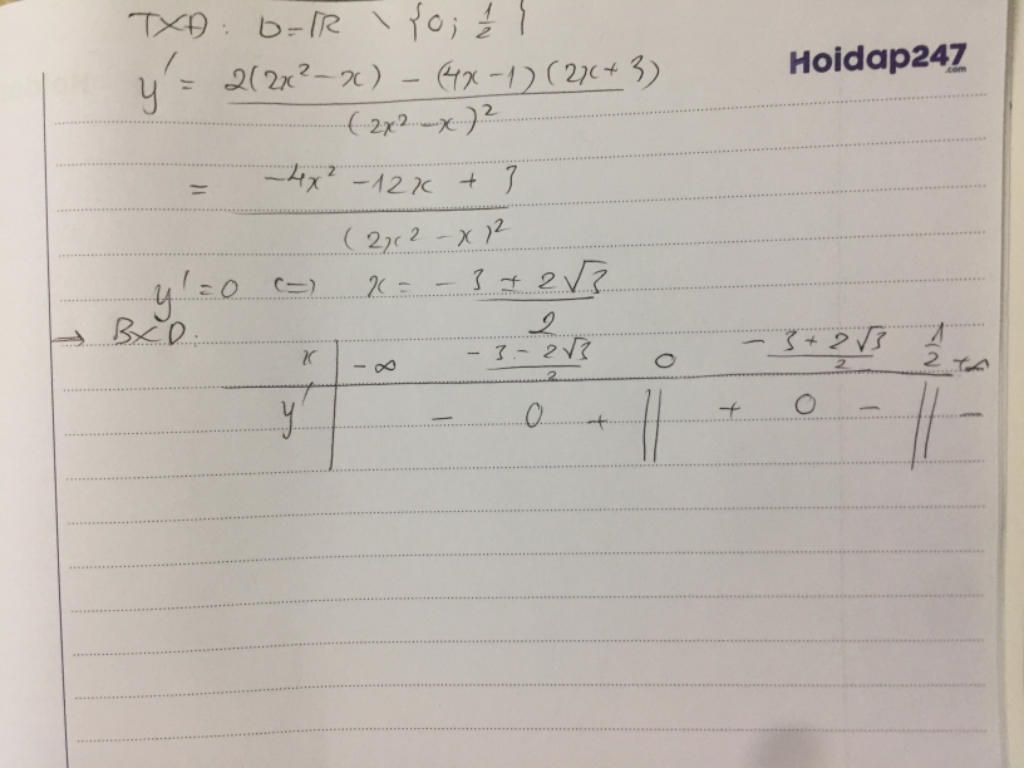 TXĐ: D=ℝ \ {0; 1/2}
Hoidap247
.com
y' = (2(2x² - x) - (4x - 1)(2x + 3))/((2x² - x)²)
= (-4x² - 12x + 3)/((2x² - x)²)
y' = 0 <=> x = (-3 ± 2√3)/2
→ BXD:
x -∞ (-3 - 2√3)/2 0 (-3 + 2√3)/2 1/2 +∞
y' - 0 + || + 0 - || -